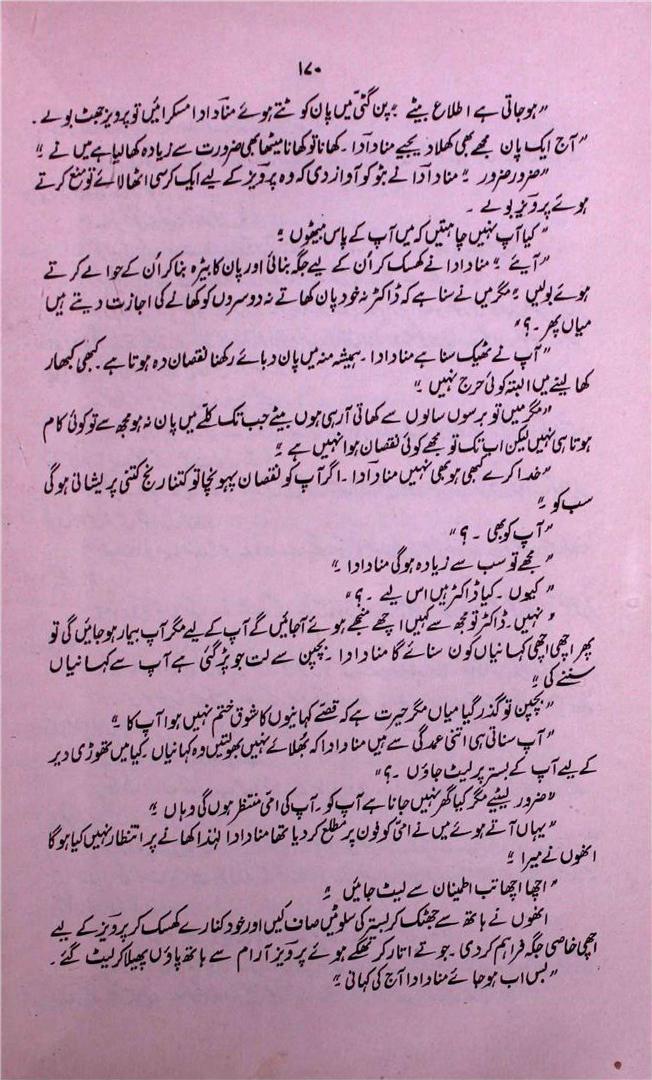 ۱۷۰
”ہوجاتی ہے اطلاع بیٹے“ پن گٹی میں پان کوٹتے ہوئے منا دادا مسکرائیں تو پرویز جھٹ بولے۔
”آج ایک پان مجھے بھی کھلا دیجیے منا دادا۔ کھانا تو کھانا میٹھا بھی ضرورت سے زیادہ کھا لیا ہے میں نے“
”ضرور ضرور“ منا دادا نے بنو کو آواز دی کہ وہ پرویز کے لیے ایک کرسی اٹھا لائے تو منع کرتے
ہوئے پرویز بولے۔
”کیا آپ نہیں چاہتیں کہ میں آپ کے پاس بیٹھوں“
”آیئے“ منا دادا نے کھسک کر اُن کے لیے جگہ بنائی اور پان کا بیڑہ بنا کر اُن کے حوالے کرتے
ہوئے بولیں“ مگر میں نے سنا ہے کہ ڈاکٹر نہ خود پان کھاتے نہ دوسروں کو کھانے کی اجازت دیتے ہیں
میاں پھر۔؟“
”آپ نے ٹھیک سنا ہے منا دادا۔ ہمیشہ منہ میں پان دبائے رکھنا نقصان دہ ہوتا ہے۔ کبھی کبھار
کھا لینے میں البتہ کوئی حرج نہیں“
”مگر میں تو برسوں سالوں سے کھاتی آرہی ہوں بیٹے جب تک کلّے میں پان نہ ہو مجھ سے تو کوئی کام
ہوتا ہی نہیں لیکن اب تک تو مجھے کوئی نقصان ہوا نہیں ہے“
”خدا کرے کبھی ہو بھی نہیں منا دادا۔ اگر آپ کو نقصان پہونچا تو کتنا رنج کتنی پریشانی ہوگی
سب کو“
”آپ کو بھی۔؟“
”مجھے تو سب سے زیادہ ہوگی منا دادا“
”کیوں۔ کیا ڈاکٹر ہیں اس لیے۔؟“
”نہیں۔ ڈاکٹر تو مجھ سے کہیں اچھے منجھے ہوئے آجائیں گے آپ کے لیے مگر آپ بیمار ہوجائیں گی تو
پھر اچھی اچھی کہانیاں کون سنائے گا منا دادا۔ بچپن سے لت جو پڑ گئی ہے آپ سے کہانیاں
سننے کی“
”بچپن تو گذر گیا میاں مگر حیرت ہے کہ قصے کہانیوں کا شوق ختم نہیں ہوا آپ کا“
”آپ سناتی ہی اتنی عمدگی سے ہیں منا دادا کہ بھلائے نہیں بھولتیں وہ کہانیاں۔ کیا میں تھوڑی دیر
کے لیے آپ کے بستر پر لیٹ جاؤں۔؟“
”ضرور لیٹیے مگر کیا گھر نہیں جانا ہے آپ کو۔ آپ کی امی منتظر ہوں گی وہاں“
”یہاں آتے ہوئے میں نے امی کو فون پر مطلع کر دیا تھا منا دادا لہٰذا کھانے پر انتظار نہیں کیا ہوگا
انھوں نے میرا“
”اچھا اچھا تب اطمینان سے لیٹ جائیں“
انھوں نے ہاتھ سے جھٹک کر بستر کی سلوٹیں صاف کیں اور خود کنارے کھسک کر پرویز کے لیے
اچھی خاصی جگہ فراہم کردی۔ جوتے اتار کر تھکے ہوئے پرویز آرام سے ہاتھ پاؤں پھیلا کر لیٹ گئے۔
”بس اب ہوجائے منا دادا آج کی کہانی“